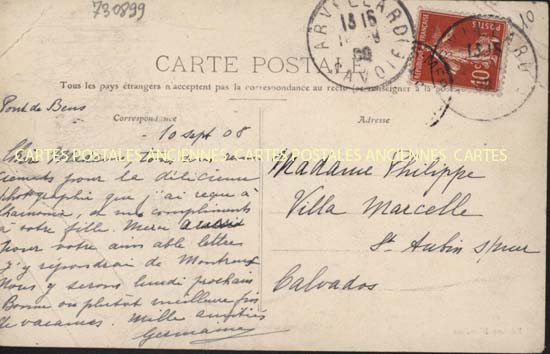 730899
10
ARVILLARD
SAVOIE
13 15
POSTES
10
CARTE POSTALE
Tous les pays étrangers n'acceptent pas la correspondance au recto (se renseigner à la poste)
Correspondance
Pont de Bens
10 sept 08
CARTES POSTALES ANCIENNES CARTES POSTALES ANCIENNES CARTES
pour la délicieuse
photographie que j'ai reçue à
Chamonix, et mes compliments
à votre fille. Merci aussi
pour votre aimable lettre
J'y répondrai de Montreux
Nous y serons lundi prochain
Bonne ou plutôt meilleure fin
de vacances. Mille amitiés
Germaine
Adresse
Madame Philippe
Villa Marcelle
St Aubin s/mer
Calvados